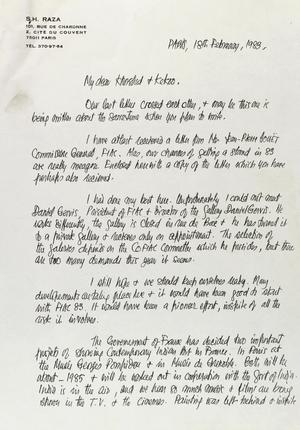 S.H. RAZA
101, RUE DE CHARONNE
2, CITÉ DU COUVENT
75011 PARIS
TEL. 370-97-64
PARIS, 18th February, 1983.
My dear Khorshed & Kekoo.
Our last letter crossed each other, & may be this one is
being written about the same time when you plan to write.
I have at last received a letter from Mr. Jean-Pierre
Commissaire General, FIAC. Also, our chances of getting a stand in 83
are really meagre. Enclosed herewith a copy of the letter which you have
perhaps also received.
I had done my best here. Unfortunately I could not meet
Daniel Gervis, President of FIAC & Director of the Gallery Daniel Gervis. He
works differently, the Gallery is closed in rue de & he has turned it
to a private Gallery & receives only on appointment. The selection of
the Galeries depends on the Committee which he presides, but there
are too many demands this year it seems.
I still hope & we should keep ourselves ready. May
developments are taking place here & it would have been good to start
with FIAC 83. It would have been a pioneer effort, inspite of all the
risk it involves.
The Government of France has decided two important
projects of showing Contemporary Indian Art in France. In Paris at
the Musée Georges Pompidou & in Musée de Grenoble. Both will be
about 1985 & will be worked out in cooperation with the Govt of India.
India is in the air, and we hear so much & films are being
shown in the T.V. & the Cinemas. Painting was left behind & inspite